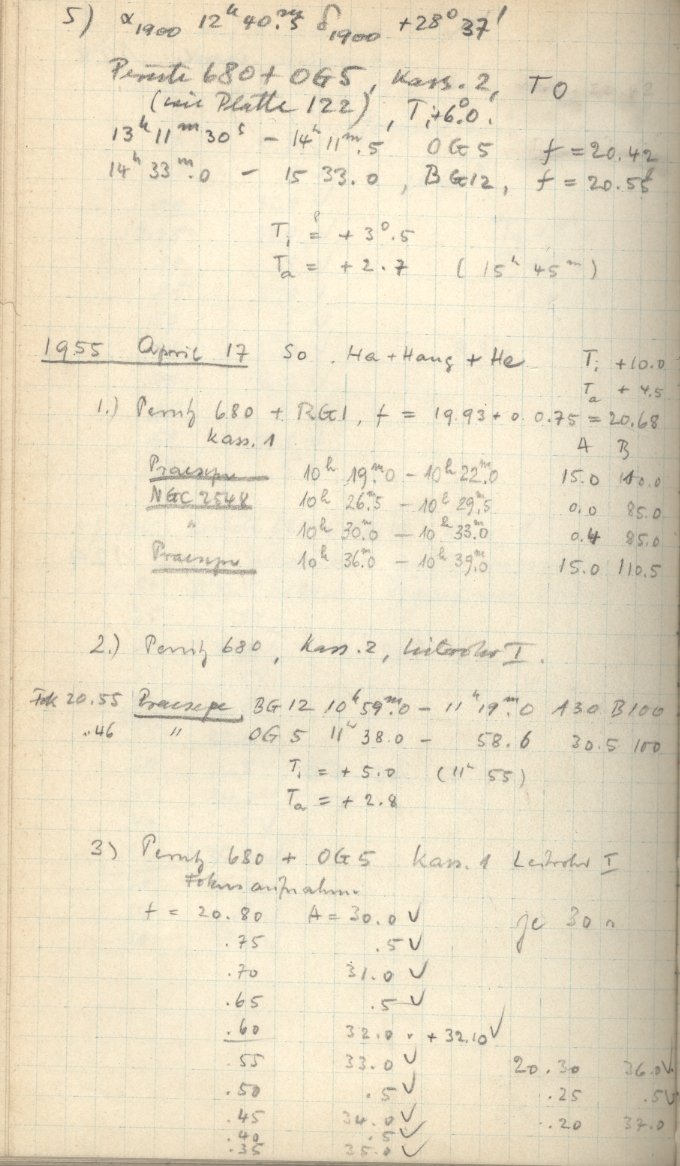 5) α1900 12h 40.m5 δ1900 +28° 37'
Perutz 680 + OG5, Kass. 2, TO
(wie Platte 122), Ti +6.0.
13h 11m 30s – 14h 11m.5 OG5 f = 20.42
14h 33m.0 – 15 33.0, BG12, f = 20.55
Ti = +3°.5
Ta = +2.7 (15h 45m)
1955 April 17 So. Ha + Haug + He Ti +10.0
Ta +4.5
1.) Perutz 680 + RG1, f = 19.93 + 0.75 = 20.68
Kass. 1 A B
Praesepe 10h 19m.0 – 10h 22m.0 15.0 110.0
NGC 2548 10h 26m.5 – 10h 29m.5 0.0 85.0
" 10h 30m.0 – 10h 33m.0 0.4 85.0
Praesepe 10h 36m.0 – 10h 39m.0 15.0 110.5
2.) Perutz 680, Kass. 2, Leitrohr I.
Fok 20.55 Praesepe BG12 10h 59m.0 – 11h 19m.0 A30 B100
.46 " OG5 11h 38.0 – 58.6 30.5 100
Ti = +5.0 (11h 55)
Ta = +2.8
3) Perutz 680 + OG5 Kass. 1 Leitrohr I
Fokusaufnahme
f = 20.80 A = 30.0 ✓ je 30
.75 .5 ✓
.70 31.0 ✓
.65 .5 ✓
.60 32.0 + 32.10 ✓
.55 33.0 ✓ 20.30 36.0 ✓
.50 .5 ✓ .25 .5 ✓
.45 34.0 ✓ .20 37.0
.40 .5 ✓
.35 35.0 ✓